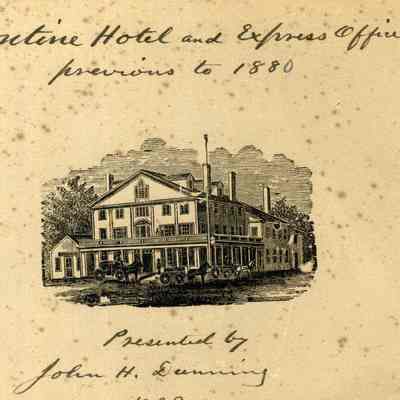 ntine Hotel and Express Office
previous to 1880
Presented by
John H. Dunning